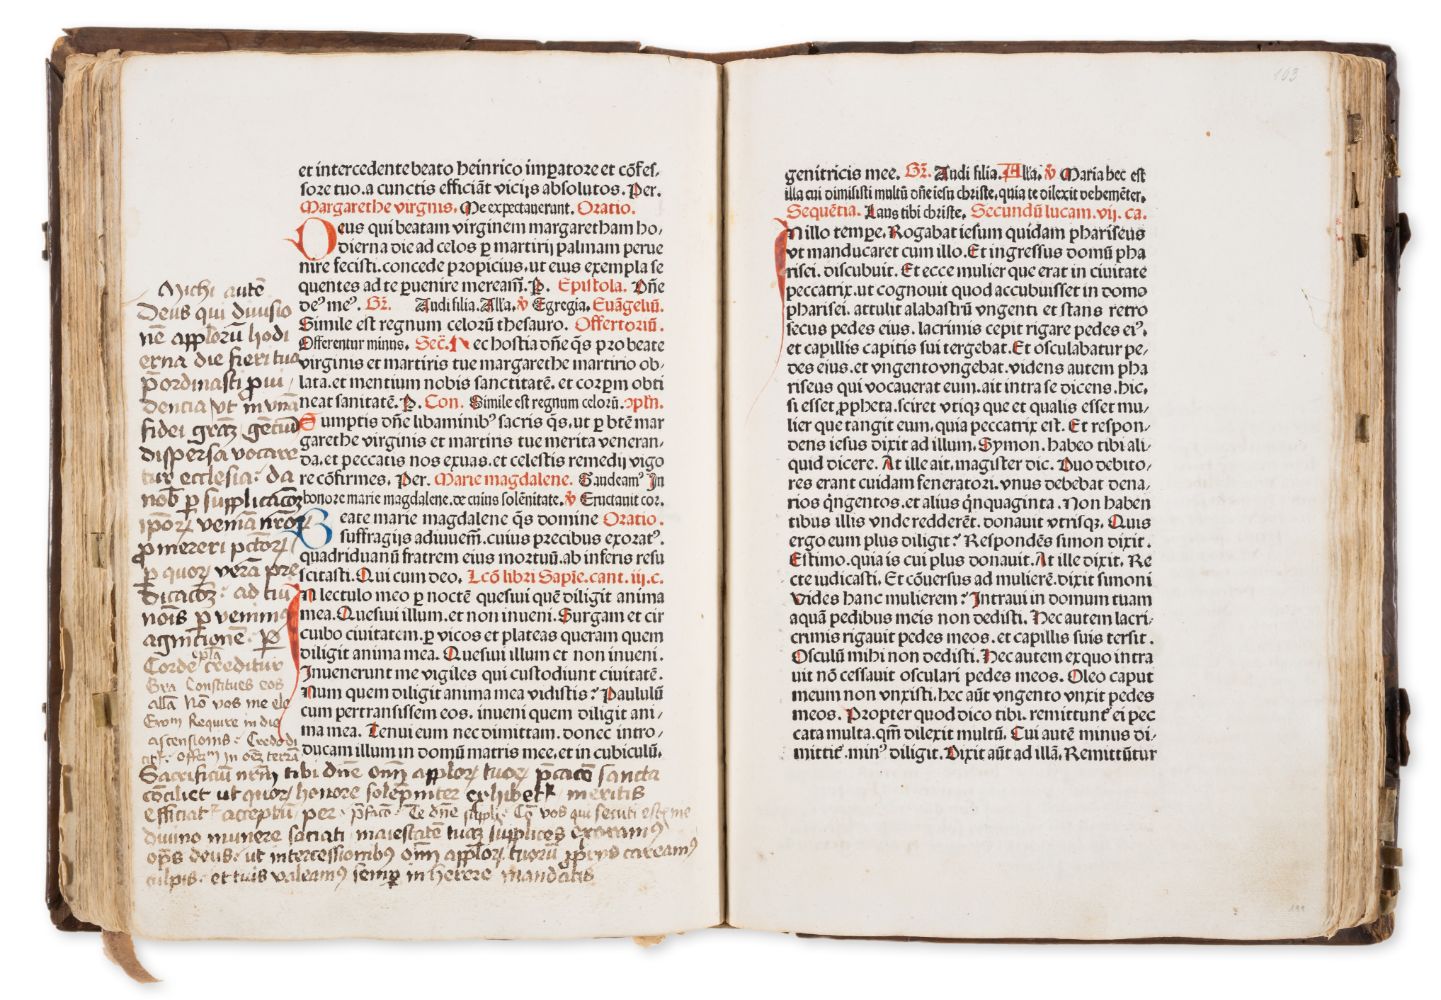 et intercedente beato heinrico imꝑatore et cõfes-
sore tuo.a cunctis efficiãt vicijs absolutos. Per.
Margarethe virgnis. Me expectauerunt. Oratio.
Deus qui beatam virginem margaretham ho-
dierna die ad celos ꝑ martirij palmam perue
nire fecisti.concede propicius.ut eius exempla se
quentes ad te ꝑuenire meream̃. P. Epistola. Dñe
deꝰ meꝰ. Gr̃. Audi filia. Alla. ꝟ Egregia. Euãgeliũ.
Simile est regnum celorũ thesauro. Offertoriũ.
Offerentur minus. Sec̃. Nec hostia dñe q̃s pro beate
virginis et martiris tue margarethe martirio ob-
lata.et mentium nobis sanctitatẽ.et corpm obti
neat sanitatẽ. P. Con. Simile est regnum celorũ. ↄplñ.
Sumptis dñe libaminibꝰ sacris q̃s.ut ꝑ btẽ mar
garethe virginis et martiris tue merita veneran-
da.et peccatis nos exuas.et celestis remedij vigo
re cõfirmes. Per. Marie magdalene. Gaudeamꝰ In
honore marie magdalene.de cuius solẽnitate. ꝟ Eructauit cor.
Beate marie magdalene q̃s domine Oratio.
suffragijs adiuuem̃.cuius precibus exoratꝰ.
quadriduanũ fratrem eius mortuũ.ab inferis resu
scitasti. Qui cum deo. Lcõ libri Sapie.cant.iii.c.
In lectulo meo ꝑ noctẽ quesui quẽ diligit anima
mea. Quesiui illum.et non inueni. Surgam et cir
cuibo ciuitatem.ꝑ vicos et plateas queram quem
diligit anima mea. Quesiui illum et non inueni.
Inuenerunt me vigiles qui custodiunt ciuitatẽ.
Num quem diligit anima mea vidistis? Paululũ
cum pertransissem eos. inueni quem diligit ani-
ma mea. Tenui eum nec dimittam. donec intro-
ducam illum in domũ matris mee.et in cubiculũ.
Michi autẽ
Deus qui diuisio
nẽ aꝑplorũ hodi
erna die fieri tua
ꝓordinasti ꝓui
dencia vt in vnã
fidei
dispersa vocare
tur ecclesia: da
nob̃ ꝑ supplicacõꝫ
veniã
ꝓmereri
ꝑ quoꝝ verã pre
dicacõꝫ: ad tui
nõis ꝑ venimꝰ
agnitionẽ: ꝑ
epl̃a
Corde creditur
Gra Constitues eos
alla Nõ vos me ele
Ewm Require in die
ascensionis: Credo di
offerm in oẽz terrã
Sacrificiũ nrm̃ tibi dñe om̃ applorꝝ tuorꝝ p̃cacõ sancta
cõciliet ut quorꝝ honore solẽpniter exhibetꝰ meritis
efficiatꝰ acceptũ: per: p̃facõ: Te dñe Cõ vos qui secuti estis me
diuino munere saciati: maiestatẽ tuaꝫ supplices exoramꝰ
op̃s deus: ut intercessionibꝰ om̃ applorꝝ tuorũ careamꝰ
culpis: et tuis valeamꝰ semꝑ in herere mandatis
103
genitricis mee. Gr̃. Audi filia. Alla. ꝟ Maria hec est
illa cui dimisisti multũ dñe iesu christe, quia te dilexit vehemẽter.
Sequẽtia. Laus tibi christe. Secundũ lucam.vij.ca.
In illo tempe. Rogabat iesum quidam phariseus
vt manducaret cum illo. Et ingressus domũ pha
risei. discubuit. Et ecce mulier que erat in ciuitate
peccatrix.ut cognouit quod accubuisset in domo
pharisei. attulit alabastrũ vngenti et stans retro
secus pedes eius. lacrimis cepit rigare pedes eiꝰ.
et capillis capitis sui tergebat. Et osculabatur pe-
des eius.et vngento vngebat. videns autem pha
riseus qui vocauerat eum.ait intra se dicens. hic.
si esset ꝓpheta.sciret vtiqꝫ que et qualis esset mu-
lier que tangit eum.quia peccatrix est. Et respon-
dens iesus dixit ad illum. Symon. habeo tibi ali-
quid dicere. At ille ait. magister dic. Duo debito-
res erant cuidam feneratori.vnus debebat dena-
rios q̃ngentos.et alius q̃nquaginta. Non haben
tibus illis vnde redderẽt. donauit vtrisqꝫ. Quis
ergo eum plus diligit? Respondẽs simon dixit.
Estimo.quia is cui plus donauit. At ille dixit. Re
cte iudicasti. Et cõuersus ad mulierẽ.dixit simoni
Vides hanc mulierem? Intraui in domum tuam
aquã pedibus meis non dedisti. Hec autem lacri-
crimis rigauit pedes meos.et capillis suis tersit.
Osculũ mihi non dedisti. Hec autem ex quo intra
uit nõ cessauit osculari pedes meos. Oleo caput
meum non vnxisti.hec aũt vngento vnxit pedes
meos. Propter quod dico tibi. remittunt̃ ei pec
cata multa.qm̃ dilexit multũ. Cui autẽ minus di-
mittit̃.minꝰ diligit. Dixit aũt ad illã. Remittũtur